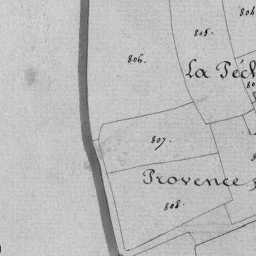 804
805.
806.
La Péch
80
807.
Provence
808.